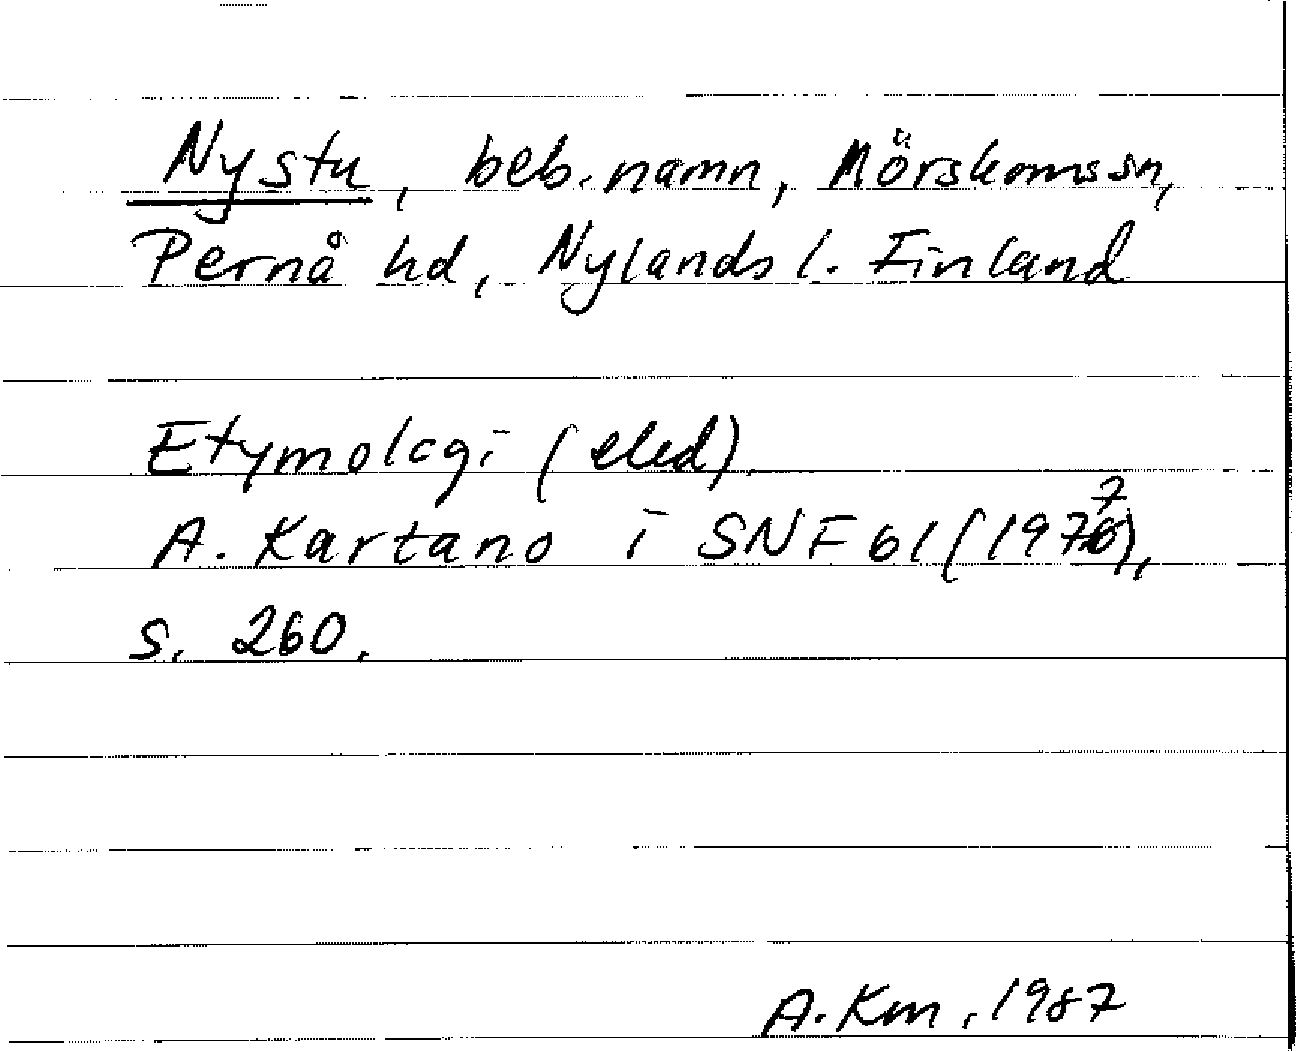 Nystu, beb.namn, Mörskoms sn,
Pernå hd, Nylands l. Finland
Etymologi (eled)
A. Kartano i SNF 61 (1977),
s. 260.
A. Km, 1987